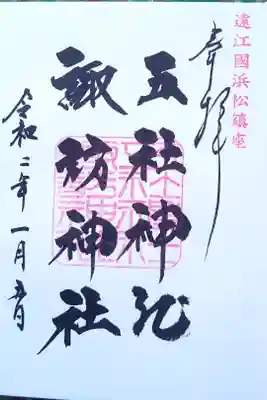 遠江國浜松鎮座
奉拝
五社神社
諏訪神社
令和二年一月五日